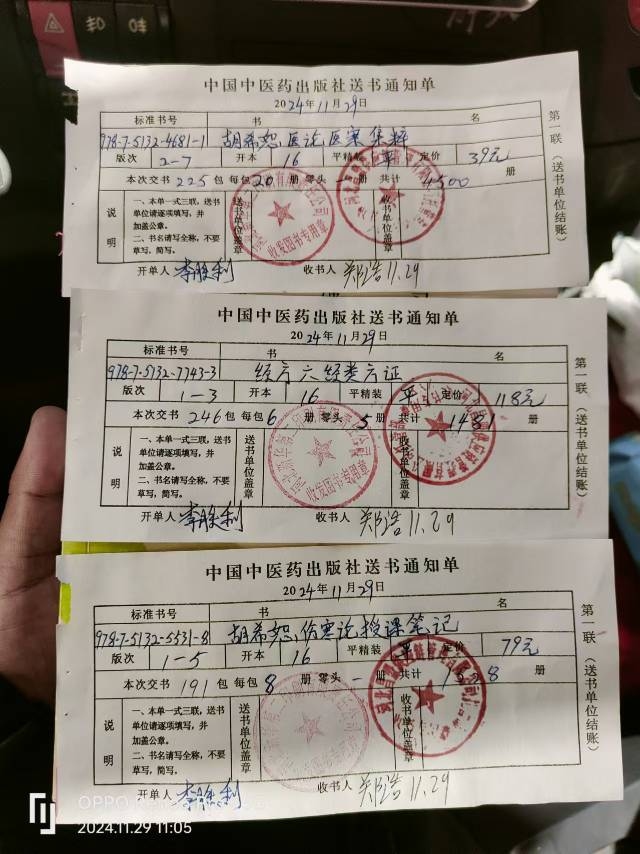 中国中医药出版社送书通知单
2024年11月29日
标准书号 书 名
978-7-5132-4681-1 胡希恕医论医案集粹
版次 2-7 开本 16 平精装 平 定价 39元
本次交书 225 包 每包 20 册 零头 册 共计 4500 册
说明
一、本单一式三联，送书单位请逐项填写，并加盖公章。
二、书名请写全称，不要草写，简写。
送书单位盖章
收书单位盖章
收发图书专用章
开单人 李胜利 收书人 郑浩 11.29
第一联（送书单位结账）
中国中医药出版社送书通知单
2024年11月29日
标准书号 书 名
978-7-5132-7743-3 经方六经类方证
版次 1-3 开本 16 平精装 平 定价 118元
本次交书 246 包 每包 6 册 零头 5 册 共计 1481 册
说明
一、本单一式三联，送书单位请逐项填写，并加盖公章。
二、书名请写全称，不要草写，简写。
送书单位盖章
收书单位盖章
收发图书专用章
开单人 李胜利 收书人 郑浩 11.29
第一联（送书单位结账）
中国中医药出版社送书通知单
2024年11月29日
标准书号 书 名
978-7-5132-5531-8 胡希恕伤寒论授课笔记
版次 1-5 开本 16 平精装 平 定价 79元
本次交书 191 包 每包 8 册 零头 - 册 共计 册
说明
一、本单一式三联，送书单位请逐项填写，并加盖公章。
二、书名请写全称，不要草写，简写。
送书单位盖章
收书单位盖章
开单人 李胜利 收书人 郑浩 11.29
第一联（送书单位结账）
OPPO
2024.11.29 11:05